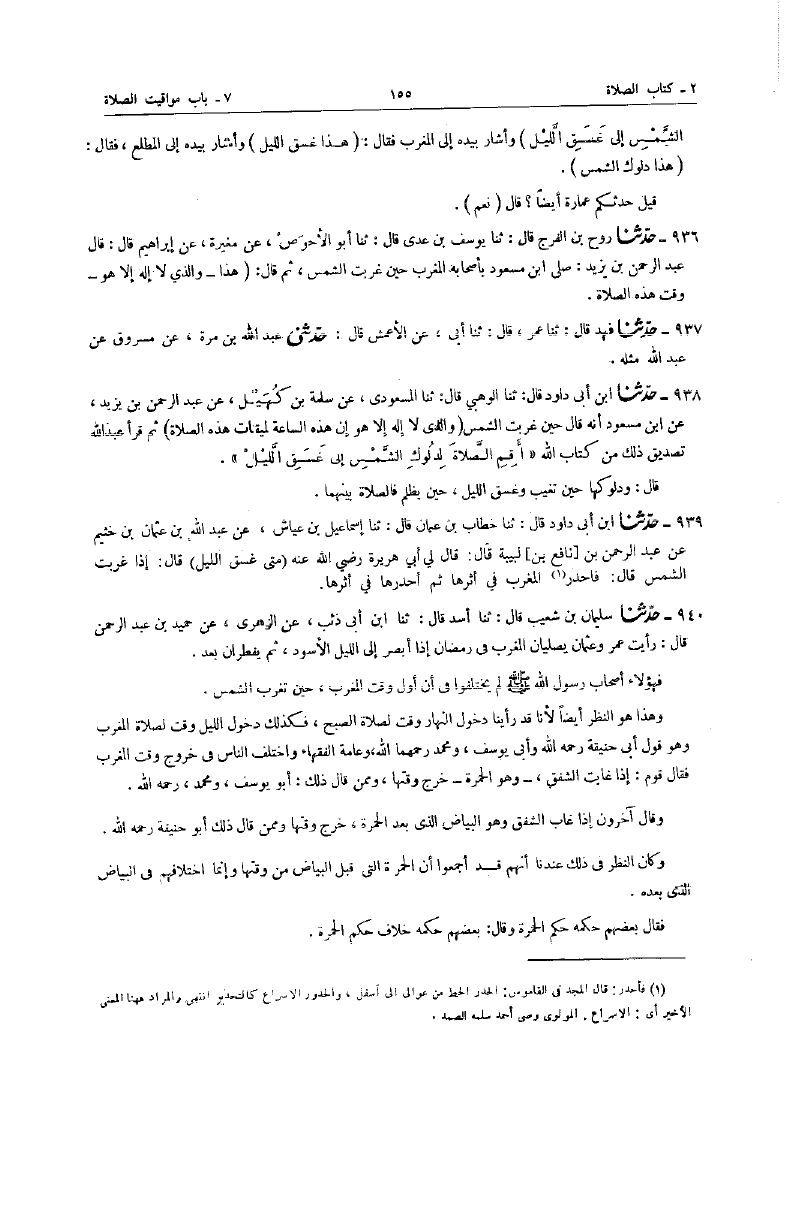 ٢ ـ كتاب الصلاة ١٥٥ ٧ ـ باب مواقيت الصلاة
الشَّمْسِ إلى غَسَقِ الَّليْلِ ) وأشار بيده إلى المغرب فقال : ( هـذا غسق الليل ) وأشار بيده إلى المطلع ، فقال :
( هذا دلوك الشمس ) .
قيل حدثـكم عمارة أيضاً ؟ قال ( نعم ) .
٩٣٦ ـ حدّثنا روح بن الفرج قال : ثنا يوسف بن عدى قال : ثنا أبو الأحوَص ، عن مغيرة ، عن إبراهيم قال : قال
عبد الرحمن بن يزيد : صلى ابن مسعود بأصحابه المغرب حين غربت الشمس ، ثم قال: ( هذا ـ والذي لا إله إلا هو ـ
وقت هذه الصلاة .
٩٣٧ ـ حدّثنا فهد قال : ثنا عمر ، قال : ثنا أبى ، عن الأعمش قال : حدّثنى عبد الله بن مرة ، عن مسروق عن
عبد الله مثله .
٩٣٨ ـ حدّثنا ابن أبى داود قال: ثنا الوهبي قال: ثنا المسعودى ، عن سلمة بن كُـهَيْـل ، عن عبد الرحمن بن يزيد ،
عن ابن مسعود أنه قال حين غربت الشمس (والذى لا إله إلا هو إن هذه الساعة لميقات هذه الصلاة) ثم قرأ عبدالله
تصديق ذلك من كتاب الله « أَقِمِ الصَّلاَةَ لِدُلُوكِ الشَّمْـسِ إِلى غَسَـقِ الَّليْـلْ » .
قال : ودلوكها حين تغيب وغسق الليل ، حين يظلم فالصلاة بينهما .
٩٣٩ ـ حدّثنا ابن أبى داود قال : ثنا خطاب بن عمان قال : ثنا إسماعيل بن عياش ، عن عبد الله بن عثمان بن خثيم
عن عبد الرحمن بن [نافع بن] لبيبة قال: قال لي أبي هريرة رضي الله عنه (متى غسق الليل) قال: إذا غربت
الشمس قال: فاحدر(١) المغرب في أثرها ثم أحدرها في أثرها.
٩٤٠ ـ حدّثنا سليمان بن شعيب قال : ثنا أسد قال : ثنا ابن أبى ذئب ، عن الزهرى ، عن حميد بن عبد الرحمن
قال : رأيت عمر وعثمان يصليان المغرب فى رمضان إذا أبصر إلى الليل الأسود ، ثم يفطران بعد .
فهؤلاء أصحاب رسول الله ﷺ لم يختلفوا فى أن أول وقت المغرب ، حين تغرب الشمس .
وهذا هو النظر أيضاً لأنا قد رأينا دخول النهار وقت لصلاة الصبح ، فـكذلك دخول الليل وقت لصلاة المغرب
وهو قول أبى حنيفة رحمه الله وأبى يوسف ، ومحمد رحمهما الله،وعامة الفقهاء واختلف الناس فى خروج وقت المغرب
فقال قوم : إذا غابت الشفق ، ـ وهو الحمرة ـ خرج وقتها ، وممن قال ذلك : أبو يوسف ، ومحمد ، رحمه الله .
وقال آخرون إذا غاب الشفق وهو البياض الذى بعد الحمرة ، خرج وقتها وممن قال ذلك أبو حنيفة رحمه الله .
وكان النظر فى ذلك عندنا أنهم قـــد أجمعوا أن الحمرة التى قبل البياض من وقتها وإنما اختلافهم فى البياض
الذى بعده .
فقال بعضهم حكمه حكم الحمرة وقال: بعضهم حكمه خلاف حكم الحمرة .
(١) فأحدر : قال المجد فى القاموس: الحدر الحط من عوالى الى أسفل ، والحدور الاسراع كالتحدير انتهى والمراد ههنا المعنى
الأخير أى : الاسراع . المولوى وصى أحمد سلمه الصمد .